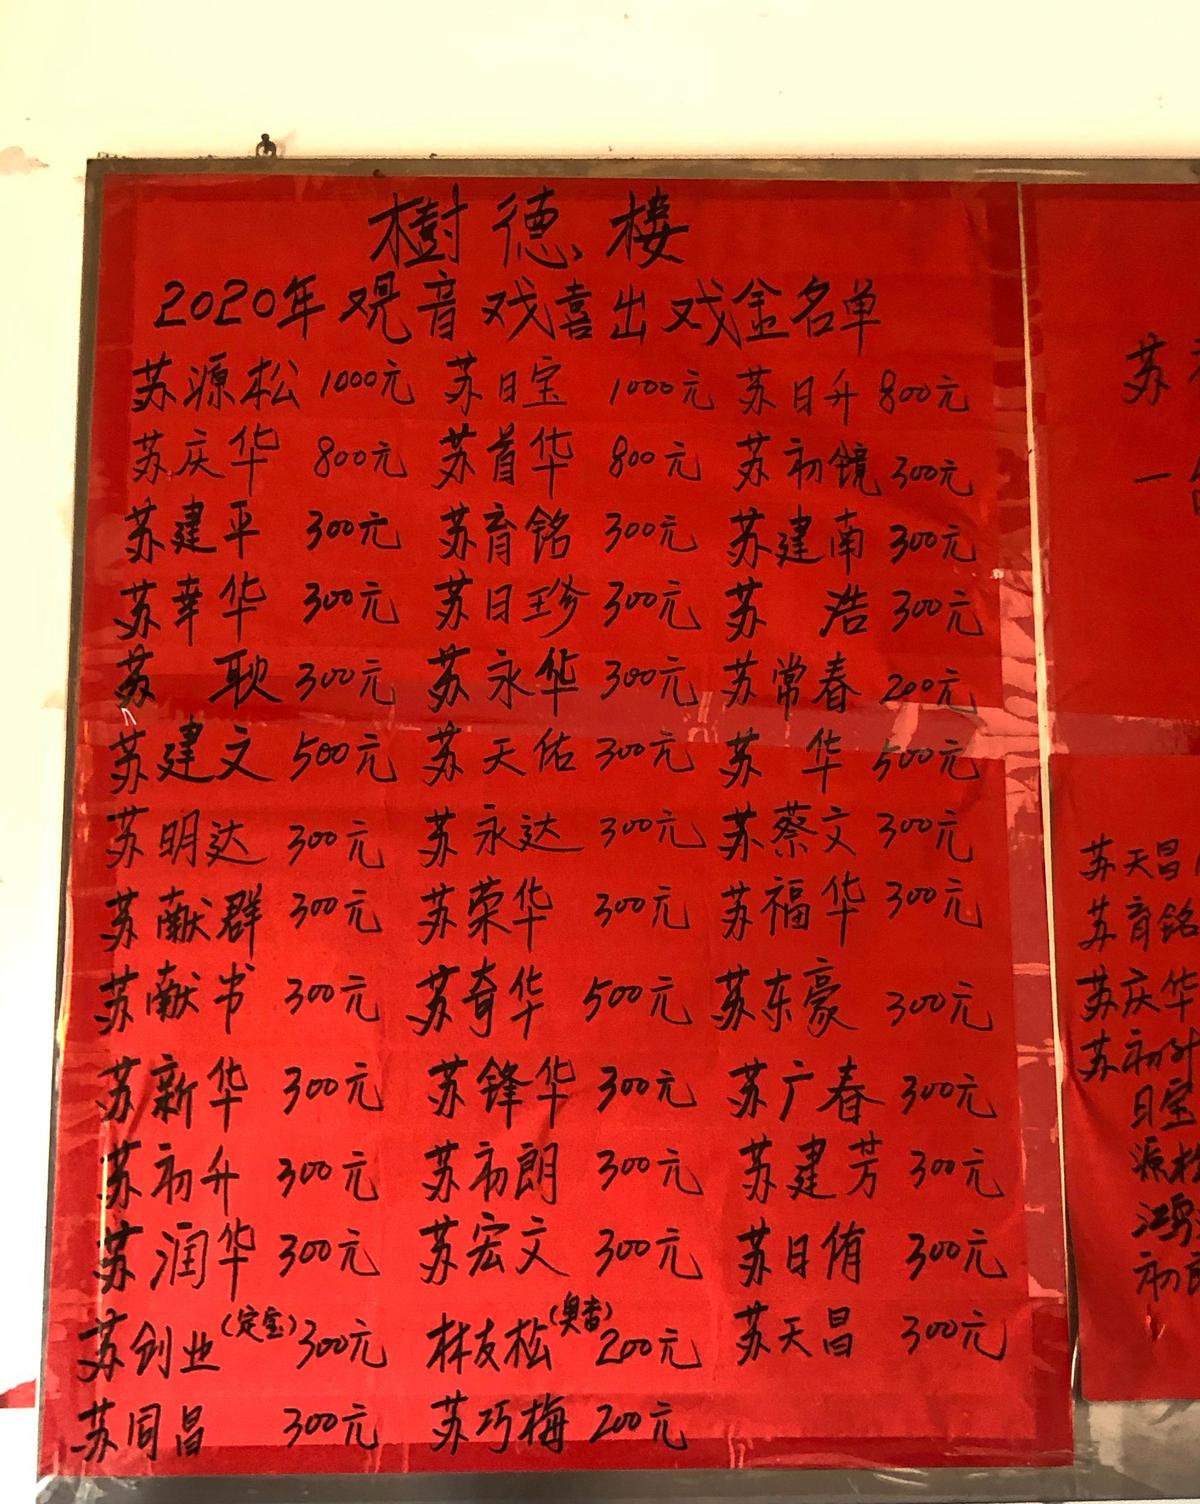 樹德楼
2020年观音戏喜出戏金名单
苏源松 1000元 苏日宝 1000元 苏日升 800元
苏庆华 800元 苏首华 800元 苏初镜 300元
苏建平 300元 苏育铭 300元 苏建南 300元
苏幸华 300元 苏日珍 300元 苏 浩 300元
苏 耿 300元 苏永华 300元 苏常春 200元
苏建文 500元 苏天佑 300元 苏 华 500元
苏明达 300元 苏永达 300元 苏蔡文 300元
苏献群 300元 苏荣华 300元 苏福华 300元
苏献书 300元 苏奇华 500元 苏东豪 300元
苏新华 300元 苏锋华 300元 苏广春 300元
苏初升 300元 苏初朗 300元 苏建芳 300元
苏润华 300元 苏宏文 300元 苏日侑 300元
苏创业(定宝) 300元 林友松(奥香) 200元 苏天昌 300元
苏同昌 300元 苏巧梅 200元
苏
一
苏天昌
苏育铭
苏庆华
苏初
日宝
源松
初